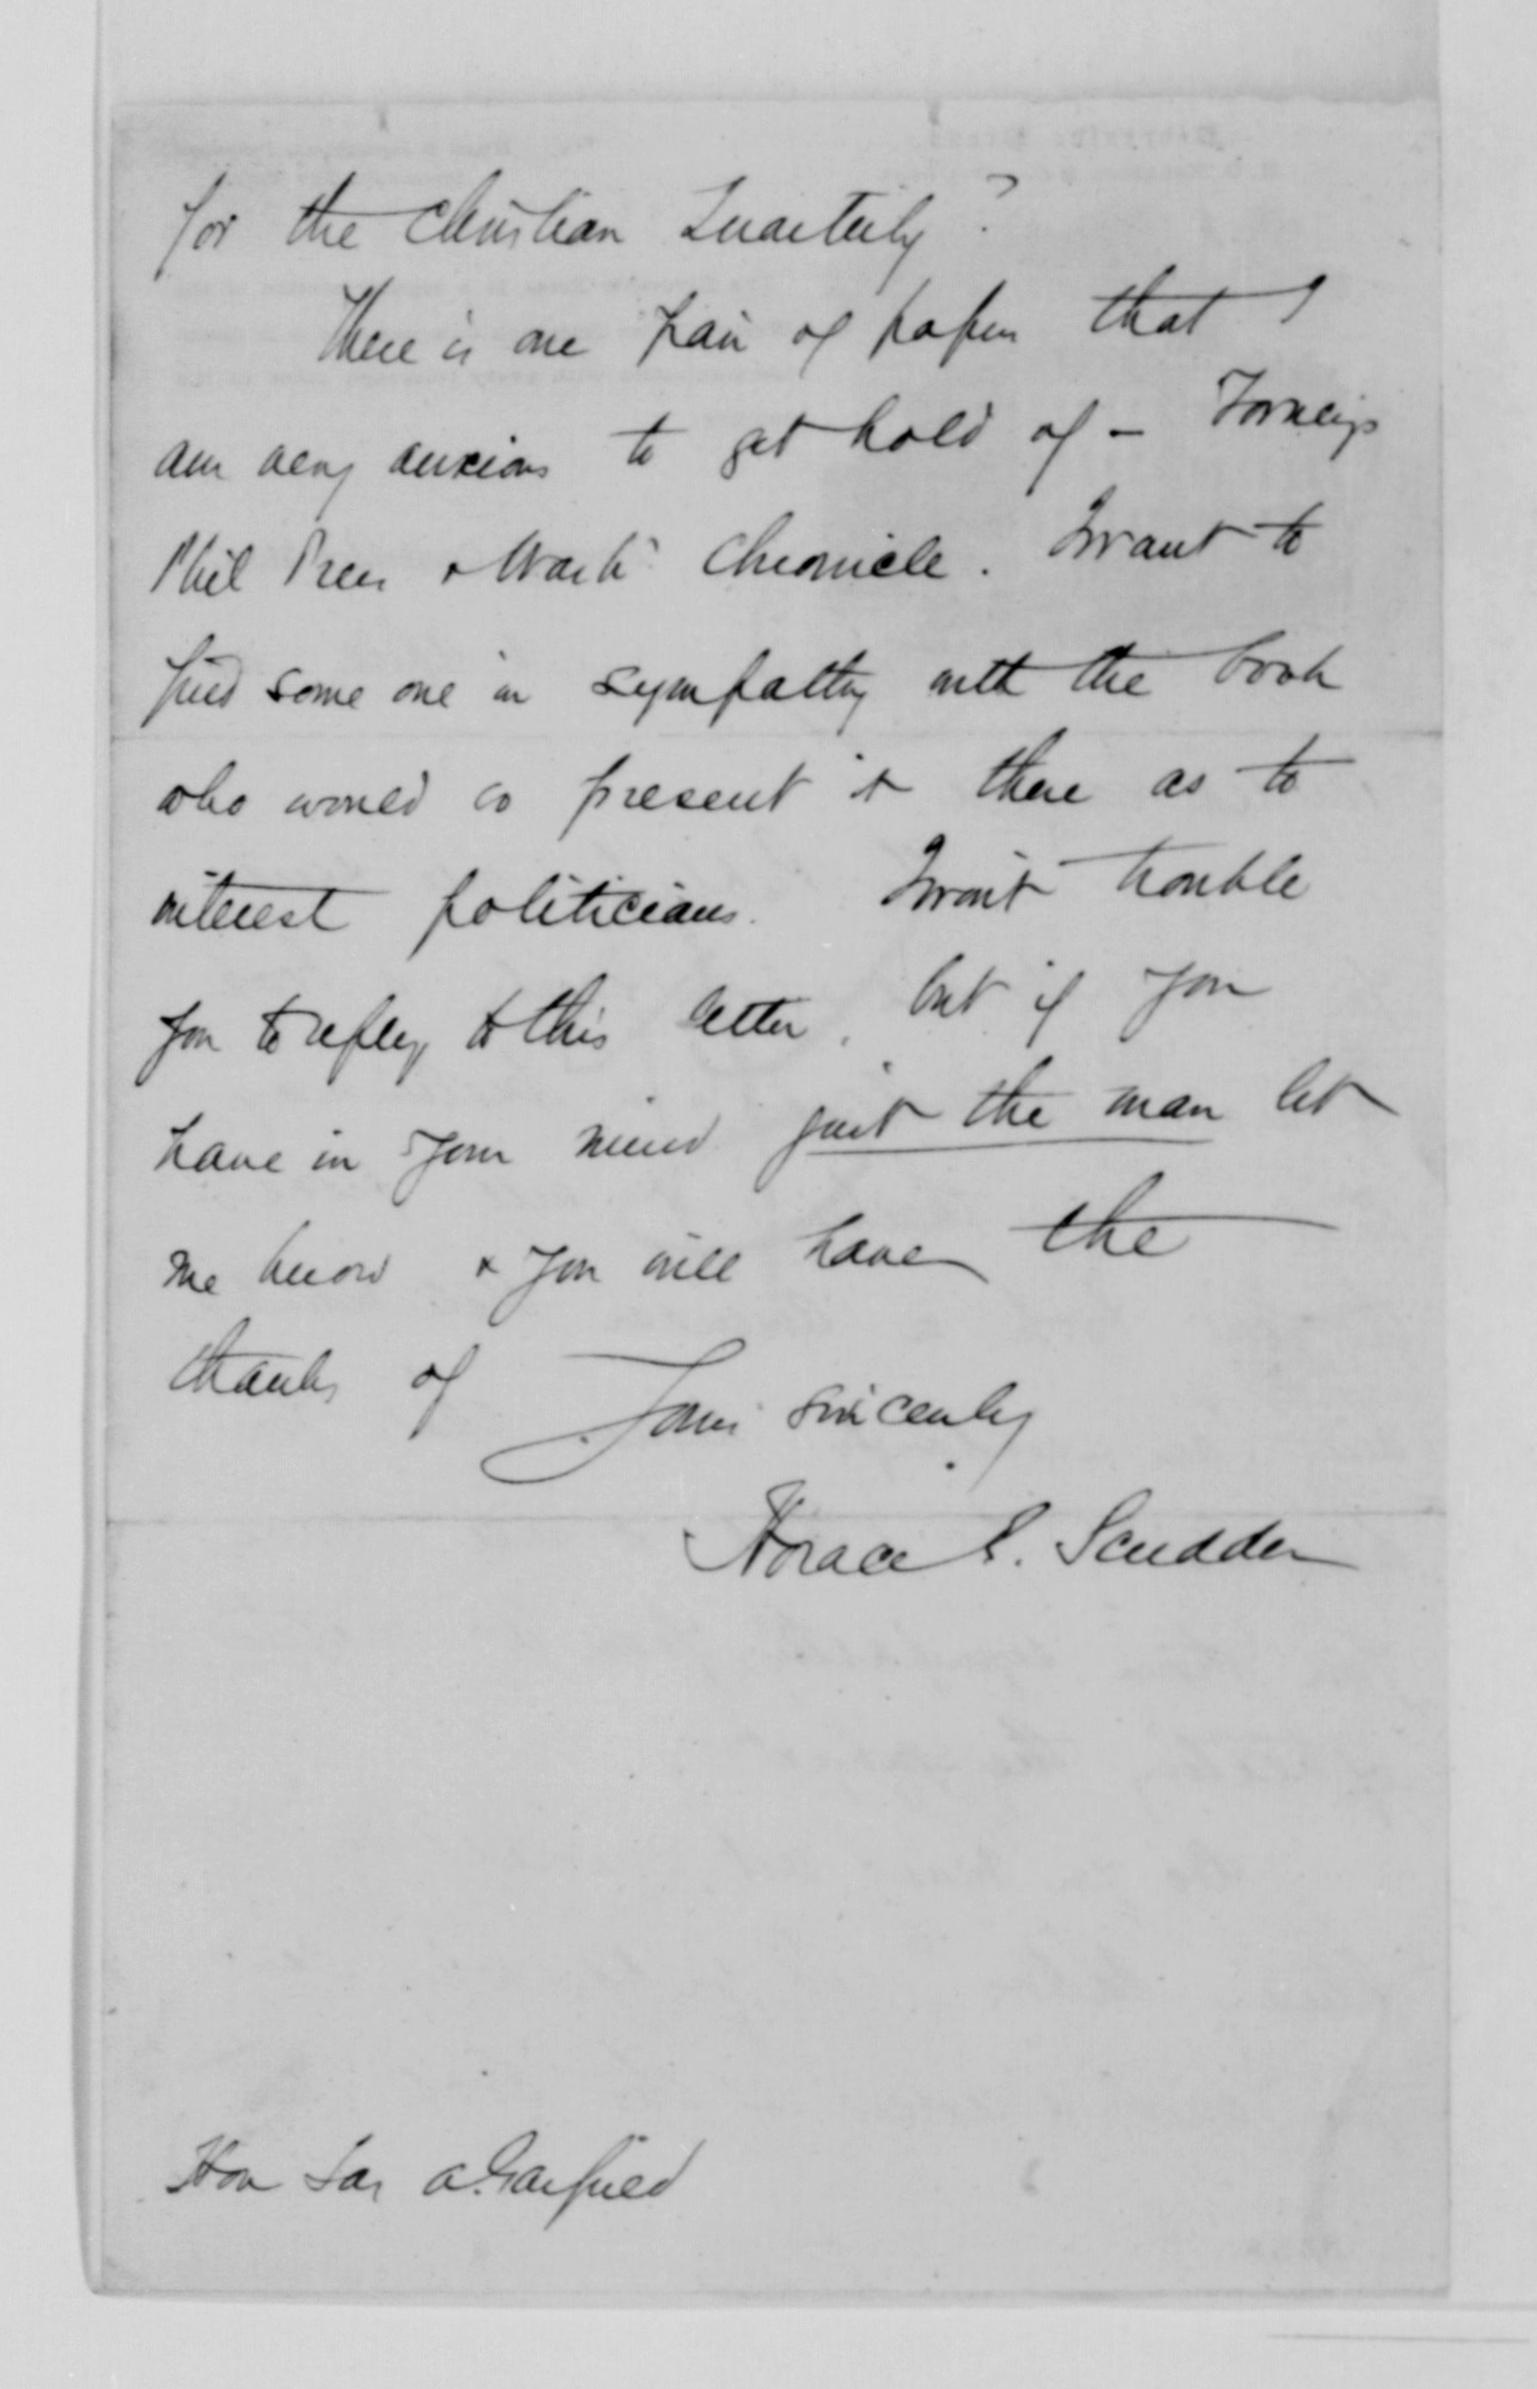 for the Christian Quarterly?
There is one pair of papers that I
am very anxious to get hold of – Forney's
Phil Press & Wash. Chronicle. I want to
find some one in sympathy with the book
who would so present it there as to
interest politicians. I won't trouble
you to reply to this letter, but if you
have in your mind just the man let
me know & you will have the
thanks of Yours sincerely
Horace E. Scudder
Hon Jas A. Garfield